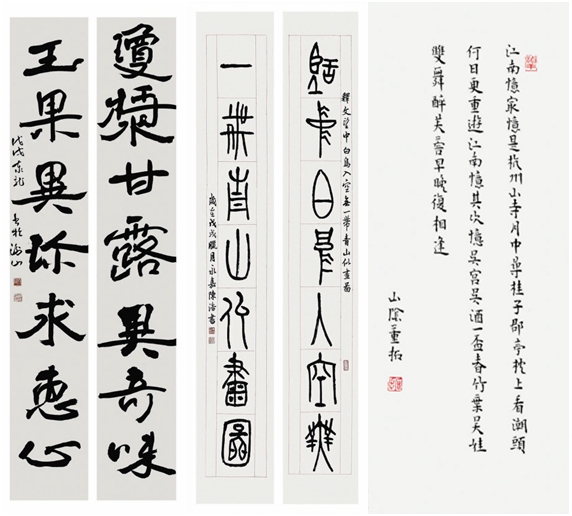 瓊漿甘露異奇味
玉果異珍求惠心
戊戌
望中白鳥入空無
釋文望中白鳥入空無一帶青山似畫圖
一帶青山似畫圖
戊戌臘月永嘉陳浩書
江南憶最憶是杭州山寺月中尋桂子郡亭枕上看潮頭
何日更重遊江南憶其次憶吳宮吳酒一盃春竹葉吳娃
雙舞醉芙蓉早晚復相逢
山陰董拓